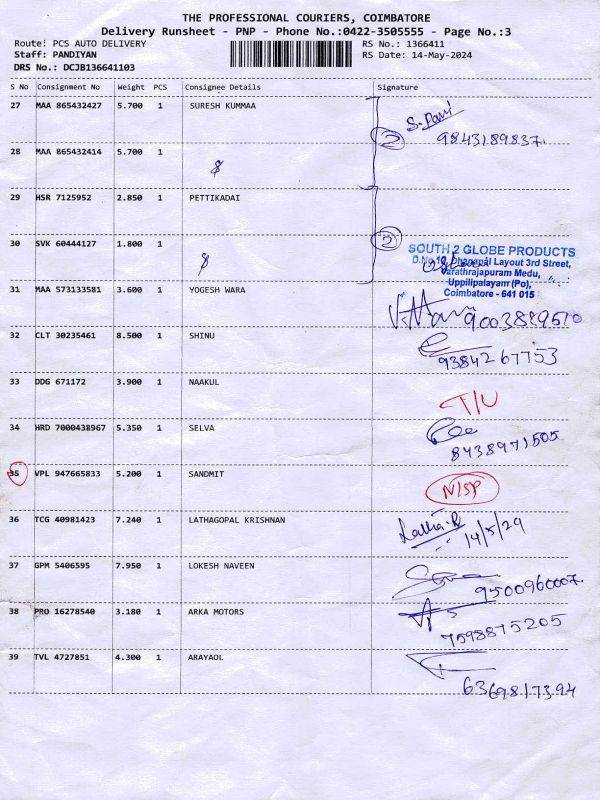 THE PROFESSIONAL COURIERS, COIMBATORE
Delivery Runsheet - PNP - Phone No.:0422-3505555 - Page No.:3
Route: PCS AUTO DELIVERY RS No.: 1366411
Staff: PANDIYAN RS Date: 14-May-2024
DRS No.: DCJB136641103
S No Consignment No Weight PCS Consignee Details Signature
27 MAA 865432427 5.700 1 SURESH KUMMAA
9843189837.
2
28 MAA 865432414 5.700 1
29 HSR 7125952 2.850 1 PETTIKADAI
30 SVK 60444127 1.800 1
2
SOUTH 2 GLOBE PRODUCTS
D.No.10, Dhanapal Layout 3rd Street,
Varathrajapuram Medu,
Uppilipalayam (Po),
Coimbatore - 641 015
31 MAA 573133581 3.600 1 YOGESH WARA
9003889510
32 CLT 30235461 8.500 1 SHINU
9384267753
33 DDG 671172 3.900 1 NAAKUL
T/U
34 HRD 7000438967 5.350 1 SELVA
8438971505
35 VPL 947665833 5.200 1 SANDMIT
N/SP
36 TCG 40981423 7.240 1 LATHAGOPAL KRISHNAN
Latha.R
14/5/29
37 GPM 5406595 7.950 1 LOKESH NAVEEN
9500960007.
38 PRO 16278540 3.180 1 ARKA MOTORS
7598875205
39 TVL 4727851 4.300 1 ARAYAOL
6369817394